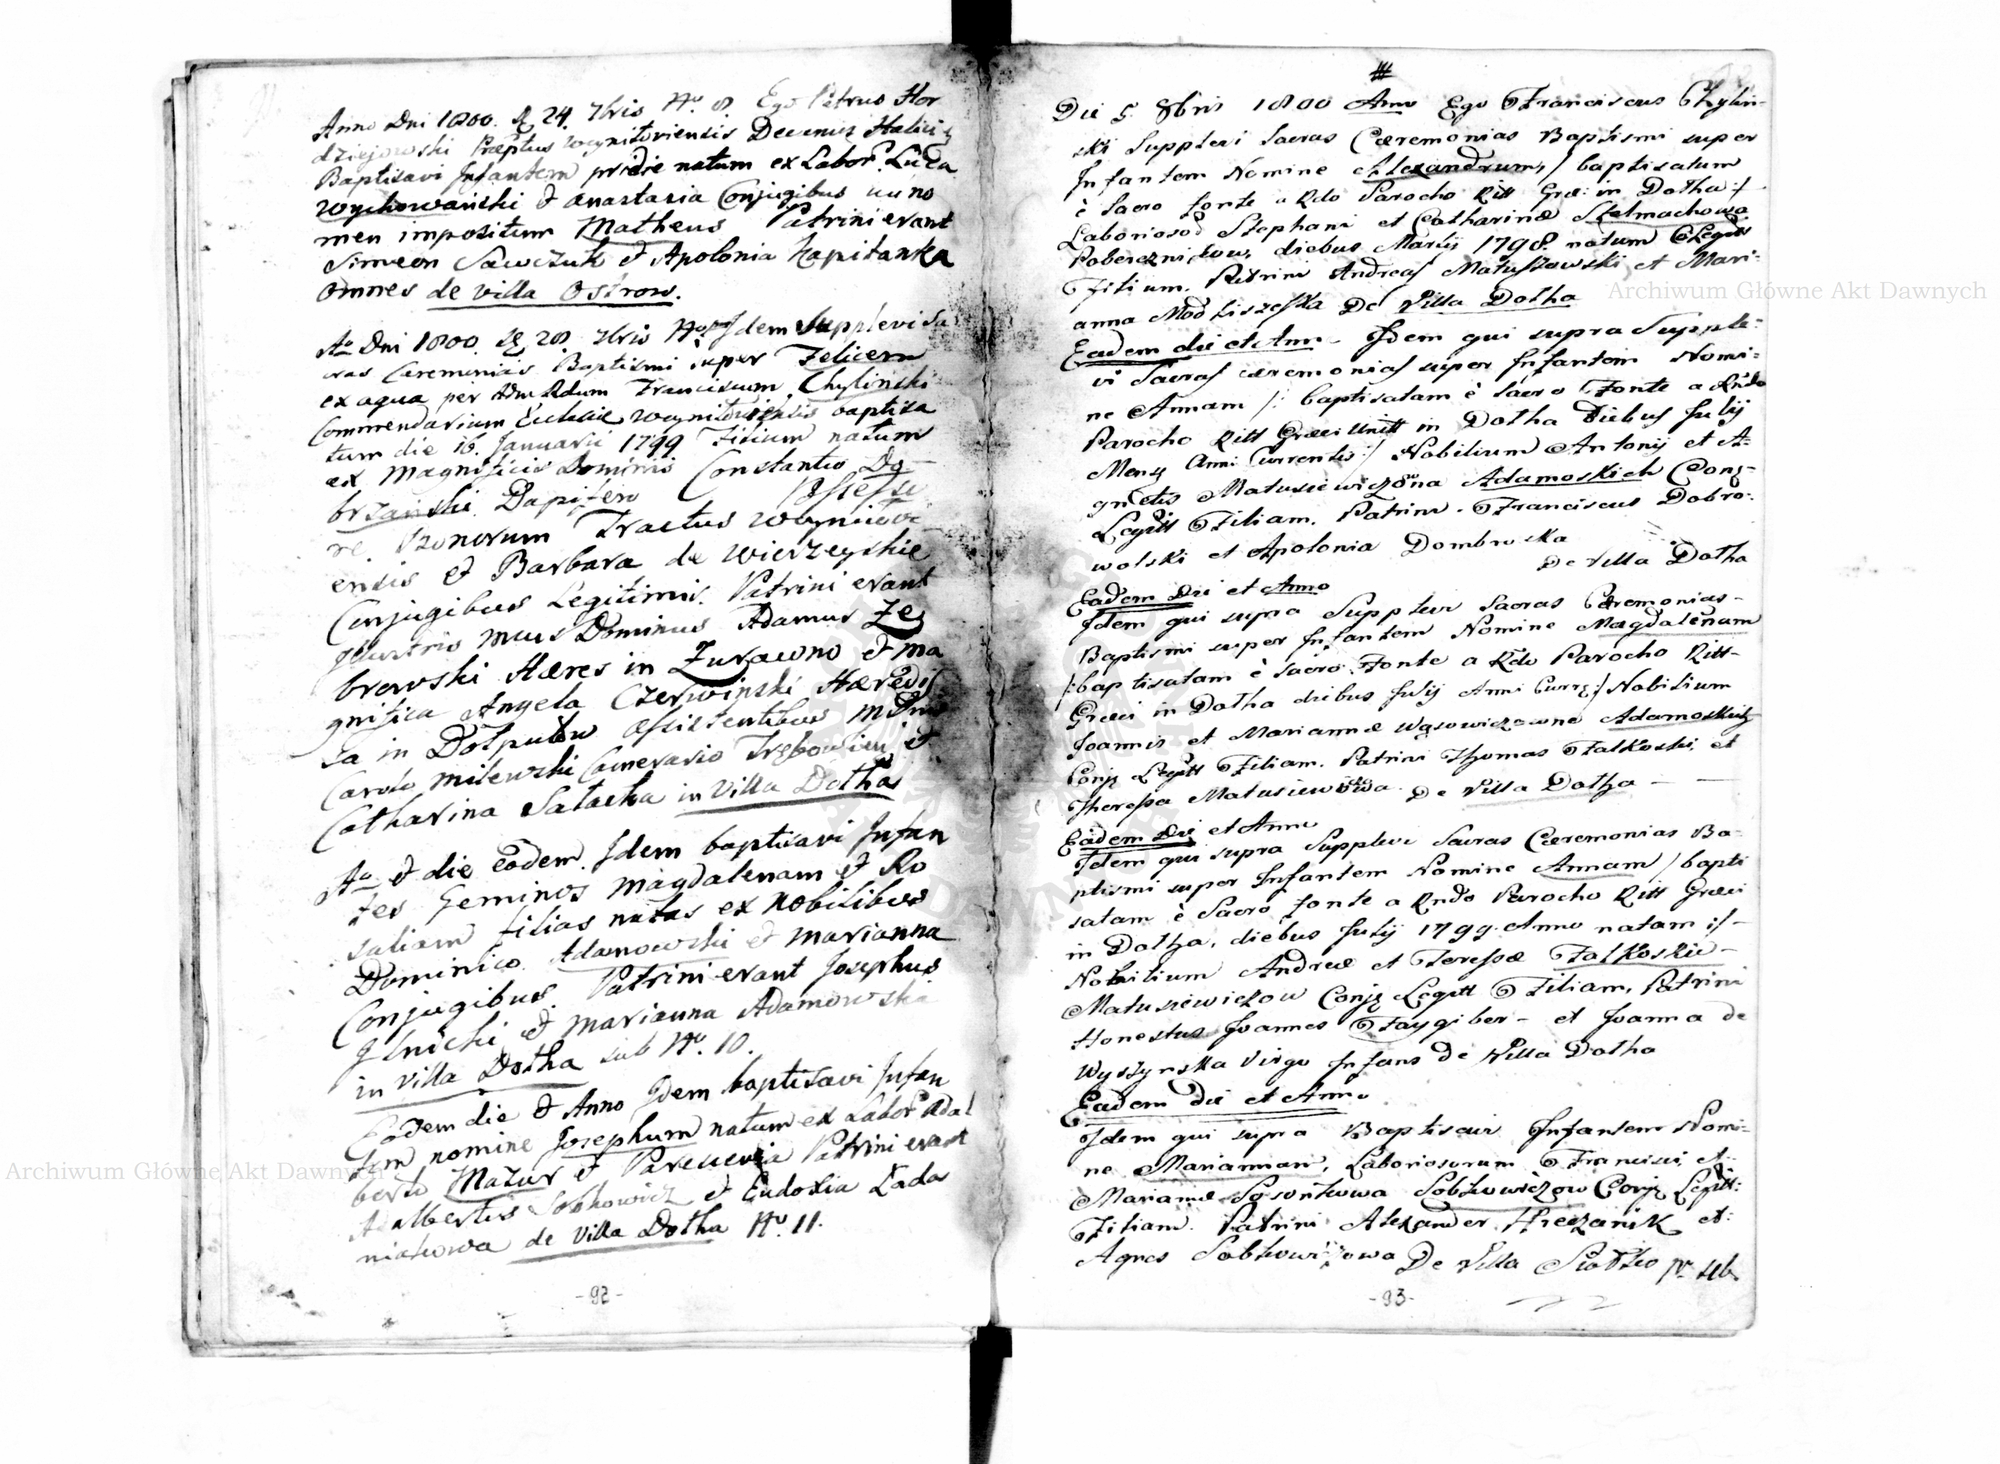 Anno Dni 1800. d. 24. 7bris No. 8 Ego Petrus Hor
dziejowski Præptus Woynitoviensis Decanus Halici
Baptisavi Infantem pridie natum ex Labor. Luca
Wychowański & Anastasia Conjugibus cui no
men impositum Matheus Patrini erant
Simeon Sawczuk & Apolonia Kapitanka
omnes de villa Ostrow.
Ao Dni 1800. d. 28. 7bris No. Idem Suplevi Sa
cras Ceremonias Baptismi super Felicem
ex aqua per Adm Rdum Franciscum Chyliński
Commendarium Ecclesiæ Woynitoviensis baptisa
tum die 16. Januarii 1799 Filium natum
ex Magnificis Dominis Constantio Do
brzański Dapifero Possesso
re Bonorum Tractus Woynitovi
ensis & Barbara de Wierzeyskie
Conjugibus Legitimis. Patrini erant
Illustris mus Dominus Adamus Ze
browski Hæres in Zurawno & Ma
gnifica Angela Czerwinski Hæredis
sa in Dolputow assistentibus
Carolo Milewski Camerario Trębowlien & 
Catharina Satacka in Villa Dotha
Ao & die eodem. Idem baptisavi Infan
tes Geminos Magdalenam & Ro
saliam filias natas ex Nobilibus
Dominico Adamowski & Marianna
Conjugibus. Patrini erant Josephus
Ilnicki & Marianna Adamowska
in Villa Dotha sub No. 10.
Eodem die & Anno Idem baptisavi Infan
tem nomine Josephum natum ex Labor. Adal
berto Mazur & Parencvia Patrini erant
Adalbertus Sobkowicz & Eudoxia Lada
niakowa de Villa Dotha No. 11.
- 92 -
Die 5. 8bris 1800 Anno Ego Franciscus Chylin-
ski Supplevi Sacras Cæremonias Baptismi super
Infantem Nomine Alexandrum, /baptisatum
è Sacro fonte a Rdo Parocho Ritt Græ: in Dotha:/
Laboriosor Stephani et Catharinæ Stelmachowa
Pobereznikow, diebus Martij 1798. natum C Legitt
Filium. Patrini Andreas Matuszowski et Mari-
anna De Villa Dotha
Eadem die et Anno Idem qui supra Supple-
vi Sacras cæremonias super Infantem Nomi-
ne Annam /: baptisatam è Sacro Fonte a Rndo
Parocho Ritt Græci Unitt in Dotha Diebus Julij
Mensis Anni Currentis:/ Nobilium Antonij et A-
gnetis Matusiewiczowna Adamoskich Conj-
Legitt Filiam. Patrini. Franciscus Dobro-
wolski et Apolonia Dombroska
De Villa Dotha
Eadem Die et Anno
Idem qui supra Supplevi Sacras Cæremonias-
Baptismi super Infantem Nomine Magdalenam
/:baptisatam è sacro Fonte a Rdo Parocho Ritt-
Græci in Dotha diebus Julij Anni Curre:/ Nobilium
Joannis et Mariannæ Wąsowiczowna Adamoskich
Conj Legitt Filiam. Patrini Thomas Falkoski, et
Theressa Matusiewiczowa. De Villa Dotha -
Eadem Die et Anno
Idem qui supra Supplevi Sacras Cæremonias Ba-
ptismi super Infantem Nomine Annam /bapti
satam è Sacro fonte a Rndo Parocho Ritt Græci
in Dotha, diebus Julij 1799. Anno natam :/-
Nobilium Andreæ et Teressæ Falkoskie-
Matusiewiczow Conj Legitt Filiam, Patrini
Honestus Joannes Faygiber- et Joanna de
Wyszynska Virgo Infans De Villa Dotha
Eadem die et Anno
Idem qui supra Baptisavi Infantem Nomi-
ne Mariannam, Laboriosorum Francisci, et-
Mariannæ Sosonkowa Sobkowiczow Conj Legitt:
Filiam. Patrini Alexander Hreczanik et-
Agnes Sobkowiczowa De Villa
- 93 -
Archiwum Główne Akt Dawnych
Archiwum Główne Akt Dawnych